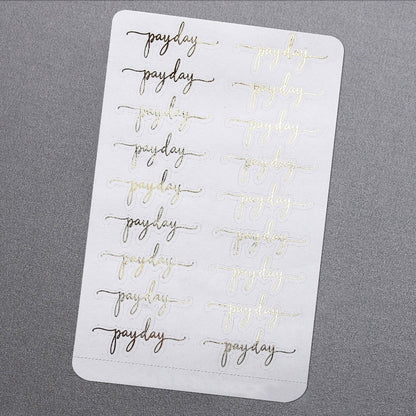 payday payday
payday payday
payday payday
payday payday
payday payday
payday payday
payday payday
payday payday
payday payday